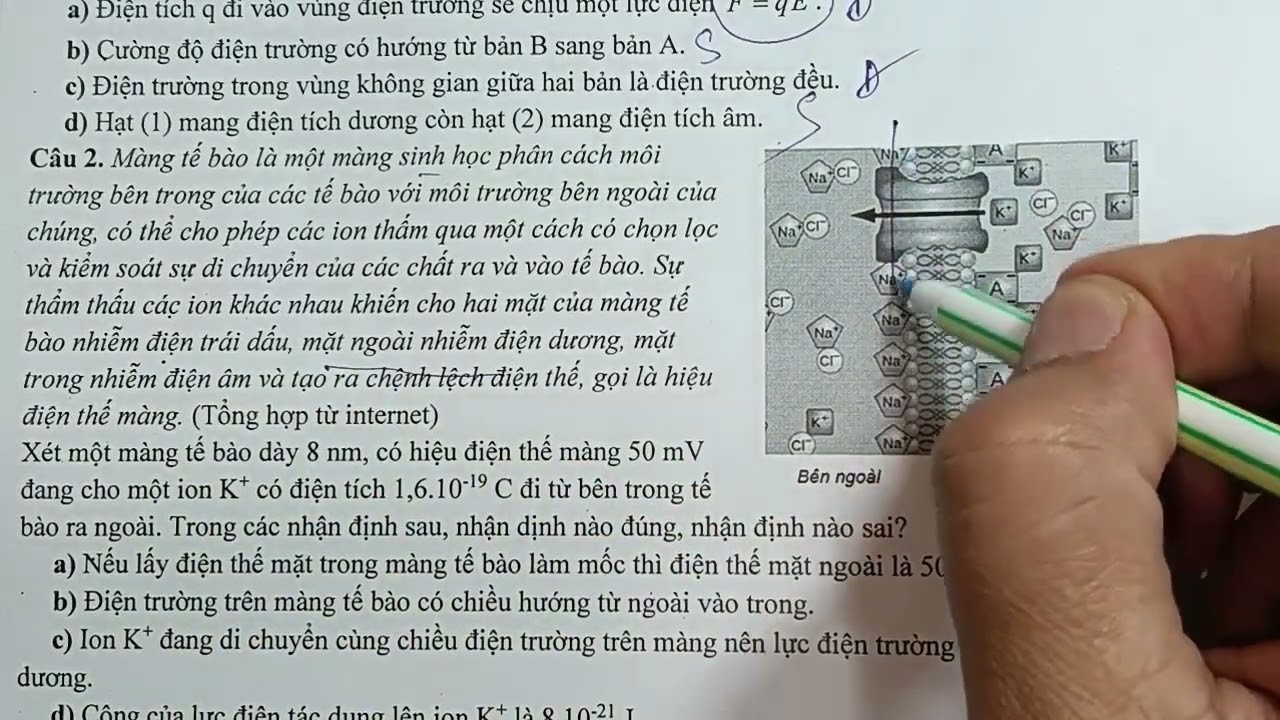 a) Điện tích q đi vào vùng điện trường sẽ chịu một lực điện F = qE.
b) Cường độ điện trường có hướng từ bản B sang bản A. S
c) Điện trường trong vùng không gian giữa hai bản là điện trường đều. Đ
d) Hạt (1) mang điện tích dương còn hạt (2) mang điện tích âm. S
Câu 2. Màng tế bào là một màng sinh học phân cách môi
trường bên trong của các tế bào với môi trường bên ngoài của
chúng, có thể cho phép các ion thấm qua một cách có chọn lọc
và kiểm soát sự di chuyển của các chất ra và vào tế bào. Sự
thẩm thấu các ion khác nhau khiến cho hai mặt của màng tế
bào nhiễm điện trái dấu, mặt ngoài nhiễm điện dương, mặt
trong nhiễm điện âm và tạo ra chệnh lệch điện thế, gọi là hiệu
điện thế màng. (Tổng hợp từ internet)
Xét một màng tế bào dày 8 nm, có hiệu điện thế màng 50 mV
đang cho một ion K⁺ có điện tích 1,6.10⁻¹⁹ C đi từ bên trong tế
bào ra ngoài. Trong các nhận định sau, nhận dịnh nào đúng, nhận định nào sai?
a) Nếu lấy điện thế mặt trong màng tế bào làm mốc thì điện thế mặt ngoài là
b) Điện trường trên màng tế bào có chiều hướng từ ngoài vào trong.
c) Ion K⁺ đang di chuyển cùng chiều điện trường trên màng nên lực điện trường
dương.
d) Công của lực điện tác dụng lên ion K⁺ là 8.10⁻²¹ J
Na⁺ A K⁺
Na⁺ Cl⁻ K⁺
K⁺ Cl⁻ Cl⁻ K⁺
Na⁺ Cl⁻ Na
K⁺
Na⁺ A
Cl⁻ Na⁺
Na⁺
Cl⁻ Na⁺
A
Na⁺
K⁺
Cl⁻ Na⁺
Bên ngoài